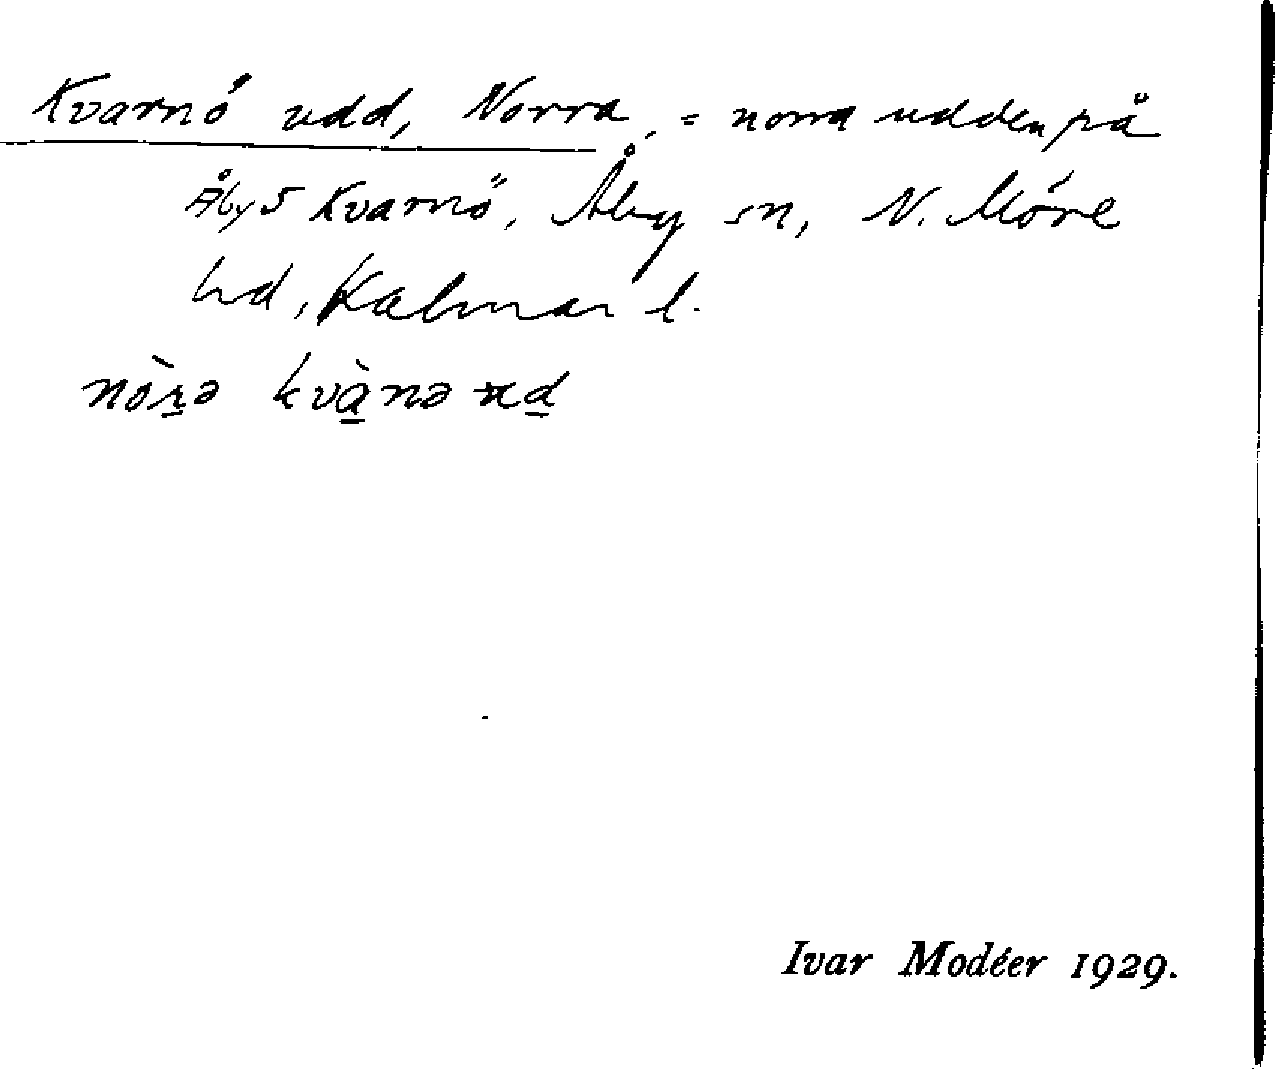 Kvarnö udd, Norra, = norra udden på
Åbys Kvarnö, Åby sn, N. Möre
hd, Kalmar l.
nòr̲ə kvà̲nə ud̲
Ivar Modéer 1929.